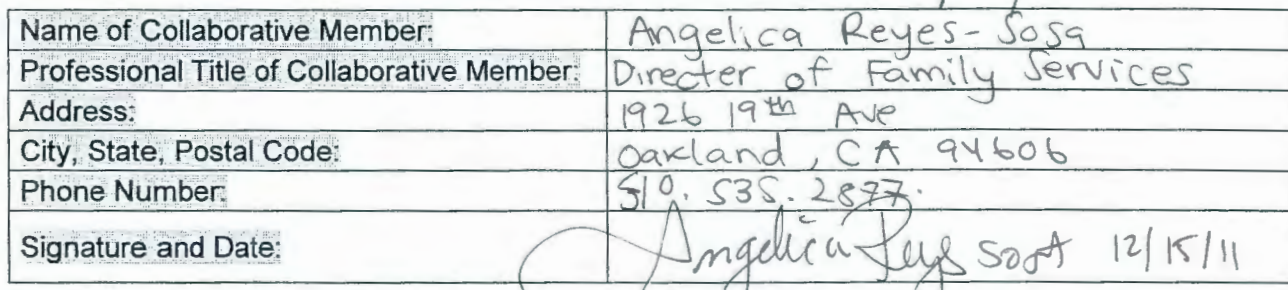 Name of Collaborative Member: Angelica Reyes-Sosa
Professional Title of Collaborative Member: Directer of Family Services
Address: 1926 19th Ave
City, State, Postal Code: Oakland, CA 94606
Phone Number: 510.535.2877.
Signature and Date: Angelica Reys SosA 12/15/11